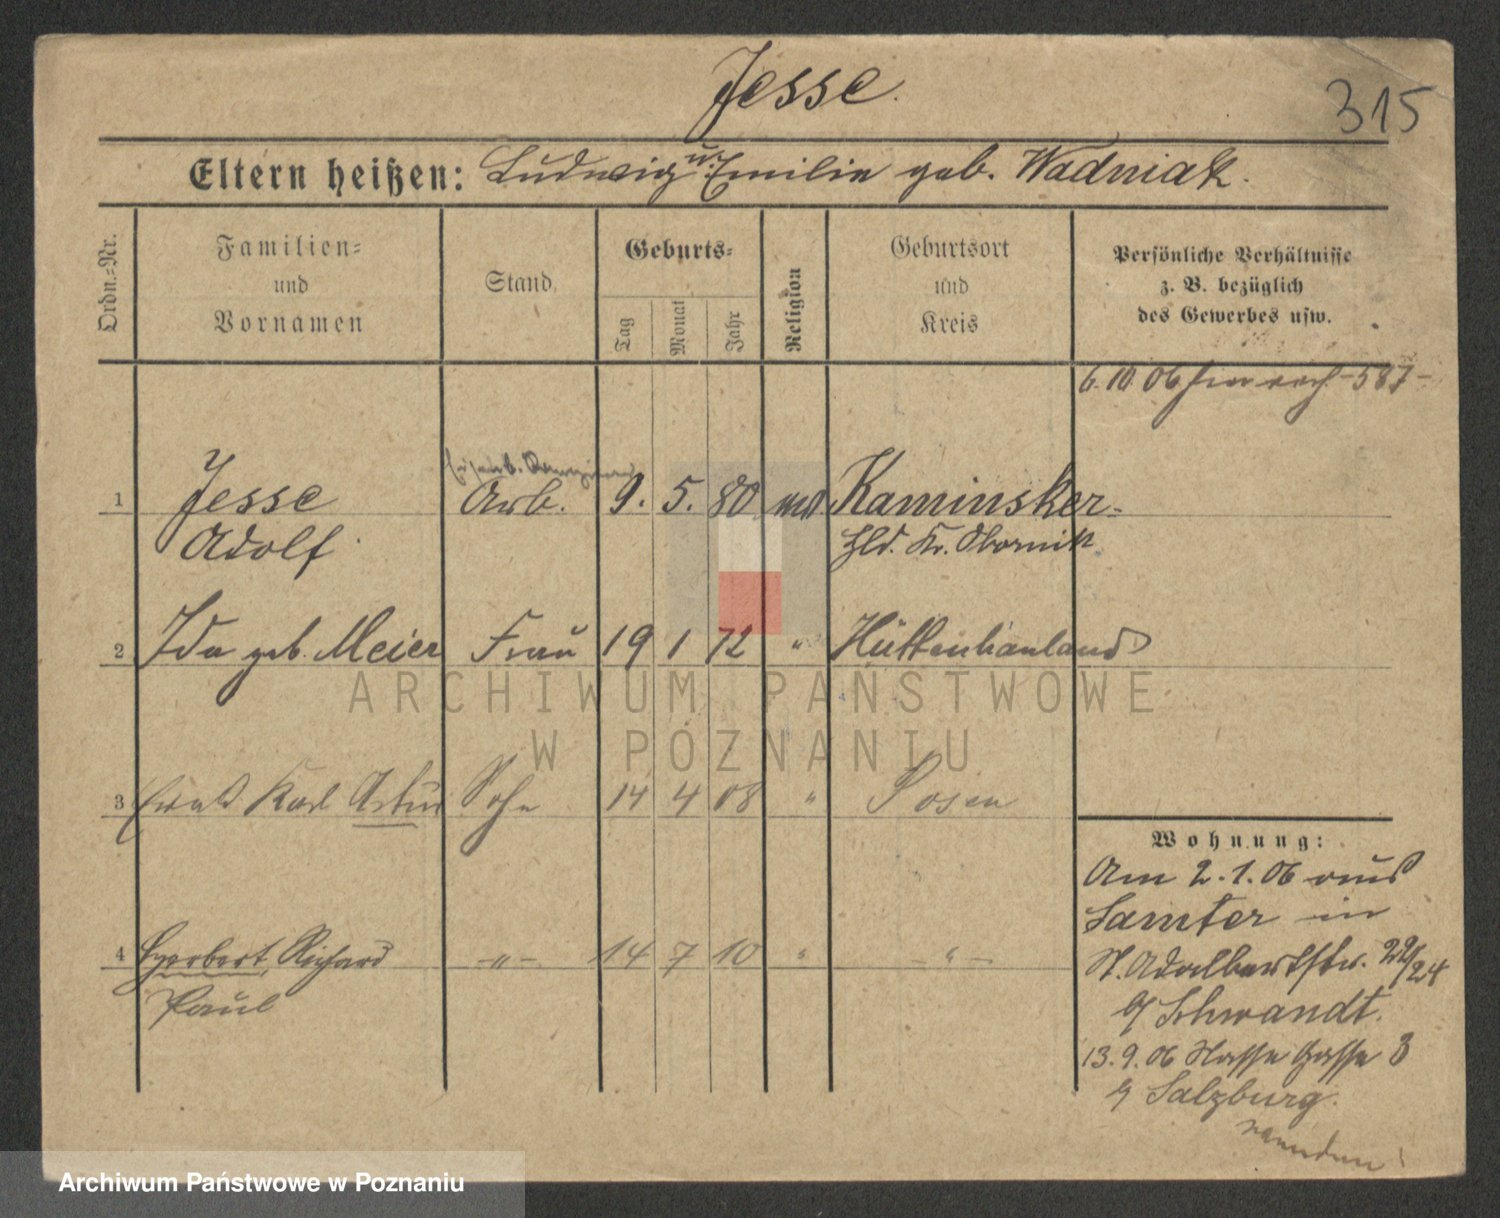 Jesse.
315
Eltern heißen: Ludwig u. Emilie geb. Wadniak.
Ordn.-Nr.
Familien-
und
Vornamen
Stand
Geburts-
Tag
Monat
Jahr
Religion
Geburtsort
und
Kreis
Persönliche Verhältnisse
z. B. bezüglich
des Gewerbes usw.
6.10.06 587-
1 Jesse Arb. 9. 5. 80 Kaminsker-
Adolf Hld. Kr. Obornik
2 Ida geb. Meier Frau 19 1 72 " Hüttenhauland
3 Karl Artur Sohn 14 4 08 " Posen
4 Herbert, Richard -"- 14 7 10 " -"-
Paul
Wohnung:
Am 2.1.06 aus
Samter in
St. Adalbertstr. 22/24
b/ Schwandt.
13.9.06 Nasse Gasse 3
b/ Salzburg.
ARCHIWUM PAŃSTWOWE
W POZNANIU
Archiwum Państwowe w Poznaniu